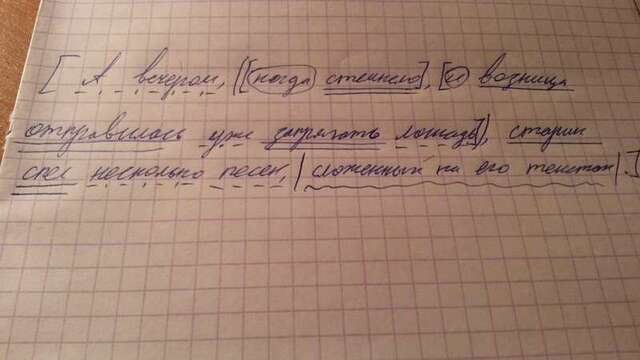 [ А вечером, ([когда стемнело], [и возница
отправилась уже запрягать лошадь]), старик
спел несколько песен, | сложенный на его текстах |.]